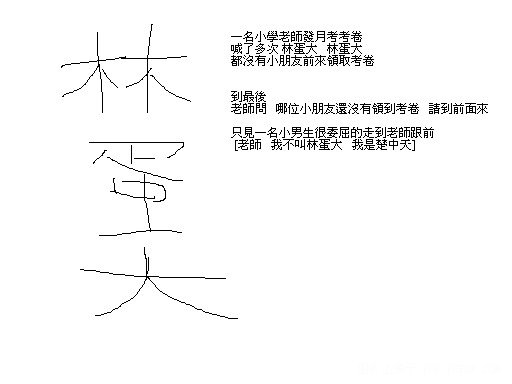 林
蛋
大
一名小學老師發月考考卷
喊了多次 林蛋大 林蛋大
都沒有小朋友前來領取考卷
到最後
老師問 哪位小朋友還沒有領到考卷 請到前面來
只見一名小男生很委屈的走到老師跟前
[老師 我不叫林蛋大 我是楚中天]